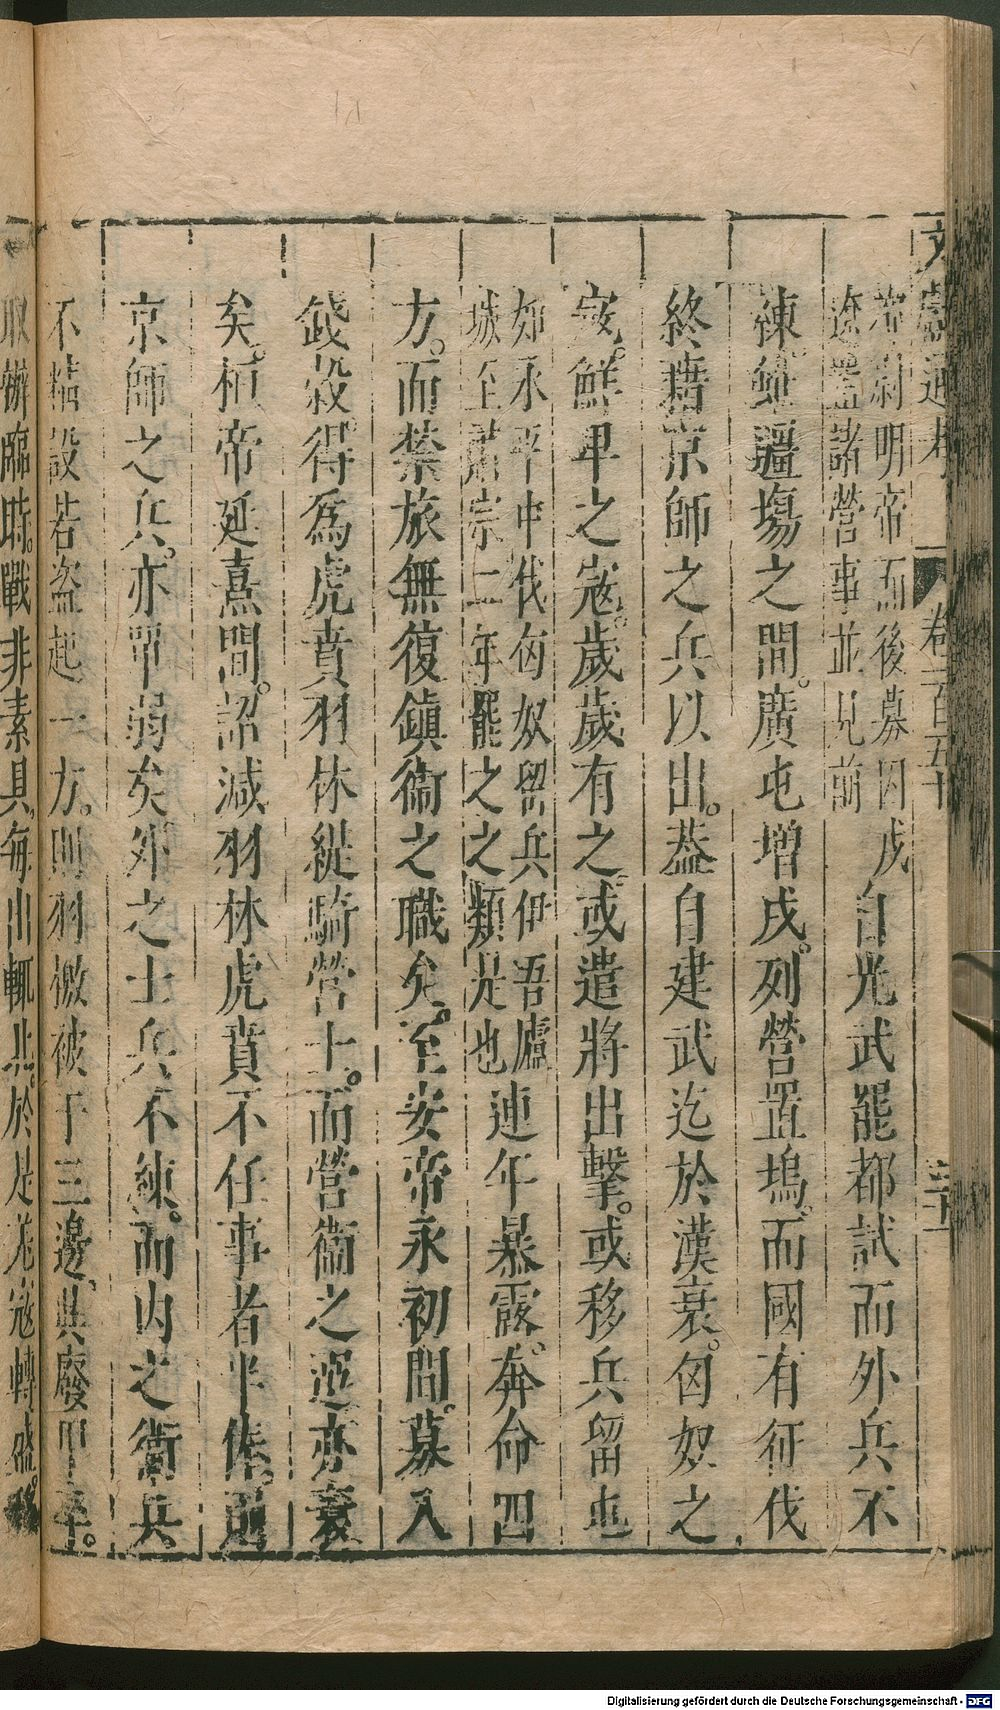 文獻通考 卷一百五十
明帝而後募囚戍
邊置諸營事並見前
自光武罷都試而外兵不
練雖疆場之間。廣屯增戍。列營置塢。而國有征伐
終藉京師之兵以出。蓋自建武迄於漢衰。匈奴之
寇。鮮卑之寇。歲歲有之。或遣將出擊。或移兵留屯
如永平中伐匈奴留兵伊吾廬
城至肅宗二年罷之之類是也
連年暴露。奔命四
方。而禁旅無復鎭衞之職矣。至安帝永初間。募入
錢穀。得爲虎賁羽林緹騎營士。而營衞之選亦衰
矣。桓帝延熹間。詔減羽林虎賁不任事者半俸。則
京師之兵。亦單弱矣。外之士兵不練。而内之衞兵
不精設若盜起一方。則羽檄被于三邊。興廢甲卒。
取辦臨時。戰非素具。每出輒北。於是羌寇轉盛。移
Digitalisierung gefördert durch die Deutsche Forschungsgemeinschaft - DFG